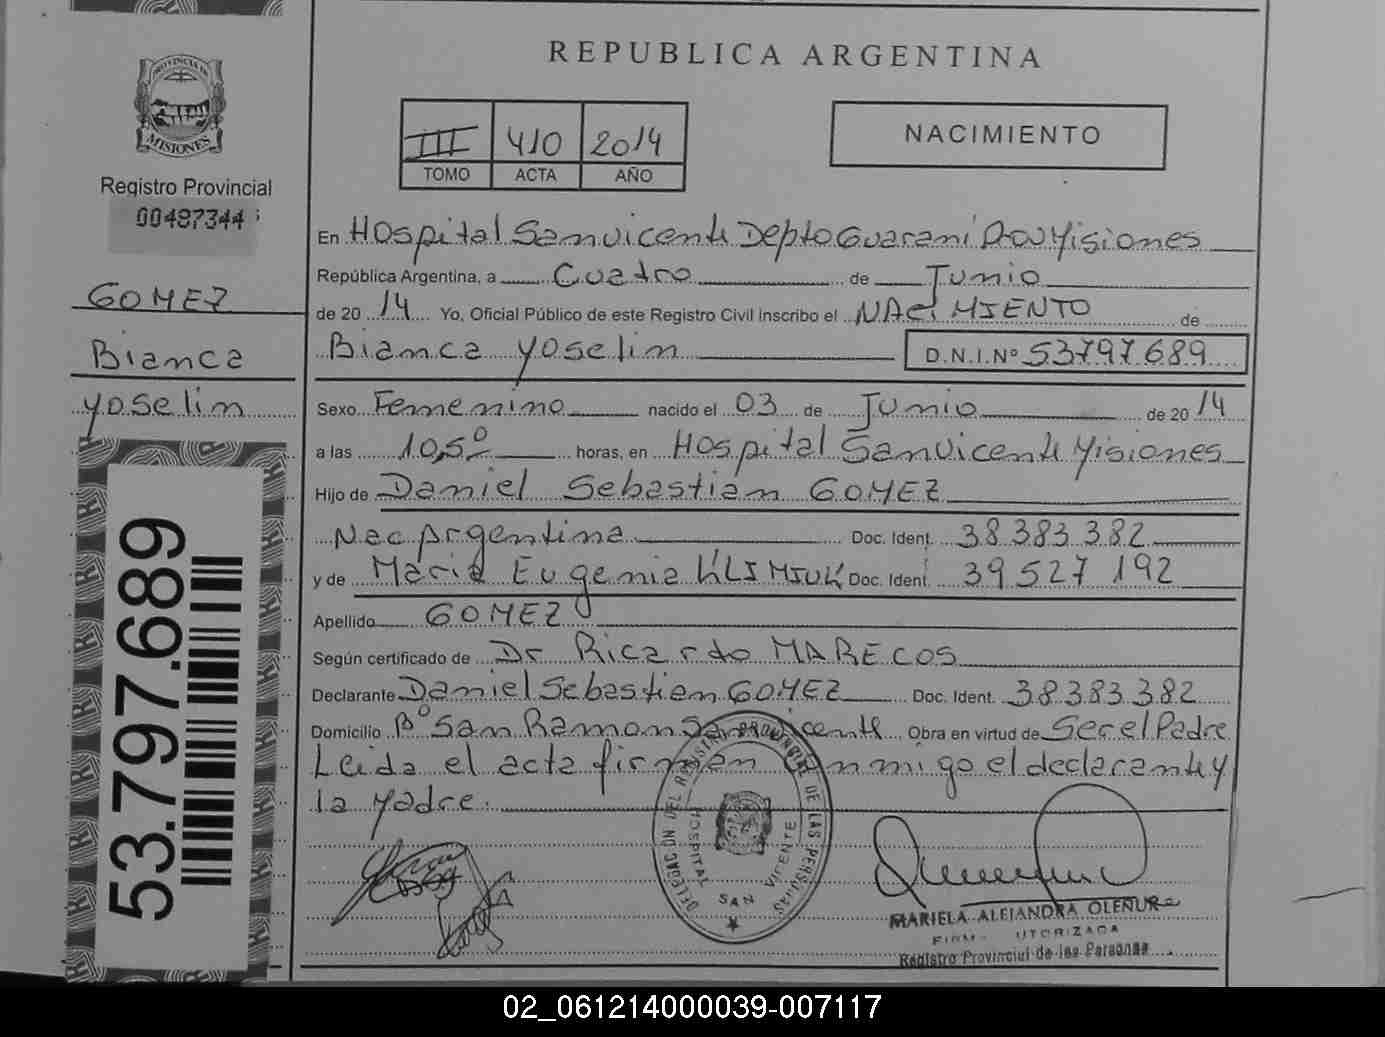 REPUBLICA ARGENTINA
PROVINCIA DE
MISIONES
Registro Provincial
00487344
III 410 2014
TOMO ACTA AÑO
NACIMIENTO
GOMEZ
Bianca
yoselin
53.797.689
En Hospital San vicente Depto Guarani Misiones
República Argentina, a Cuatro de Junio
de 20 14 Yo, Oficial Público de este Registro Civil Inscribo el NAciMIENTO de
Bianca yoselin D.N.I.Nº 53797689
Sexo Femenino nacido el 03 de Junio de 2014
a las 10,50 horas, en Hospital San Vicente Misiones
Hijo de Daniel Sebastian GOMEZ
Nac Argentina Doc. Ident. 38383382
y de Maria Eugenia KLIMIUK Doc. Ident. 39527192
Apellido GOMEZ
Según certificado de Dr Ricardo MARECOS
Declarante Daniel Sebastian GOMEZ Doc. Ident. 38383382
Domicilio Bº San Ramon San vicente Obra en virtud de Ser el Padre
Leida el acta firman conmigo el declarante y
la Madre.
DELEGACION DEL REGISTRO PROVINCIAL DE LAS PERSONAS
HOSPITAL SAN VICENTE
MARIELA ALEJANDRA OLENUR
FIRMA AUTORIZADA
Registro Provincial de las Personas
02_061214000039-007117